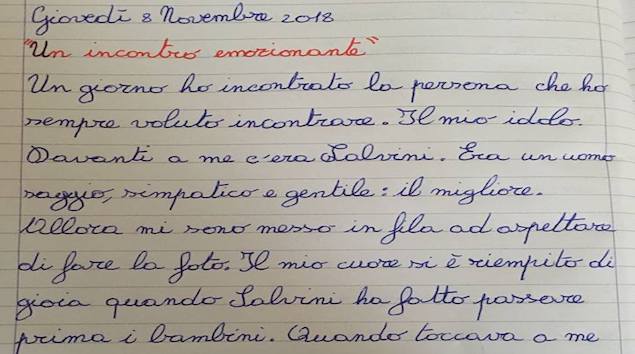 Giovedì 8 Novembre 2018
"Un incontro emozionante"
Un giorno ho incontrato la persona che ho
sempre voluto incontrare. Il mio idolo.
Davanti a me c'era Salvini. Era un uomo
saggio, simpatico e gentile: il migliore.
Allora mi sono messo in fila ad aspettare
di fare la foto. Il mio cuore si è riempito di
gioia quando Salvini ha fatto passare
prima i bambini. Quando toccava a me